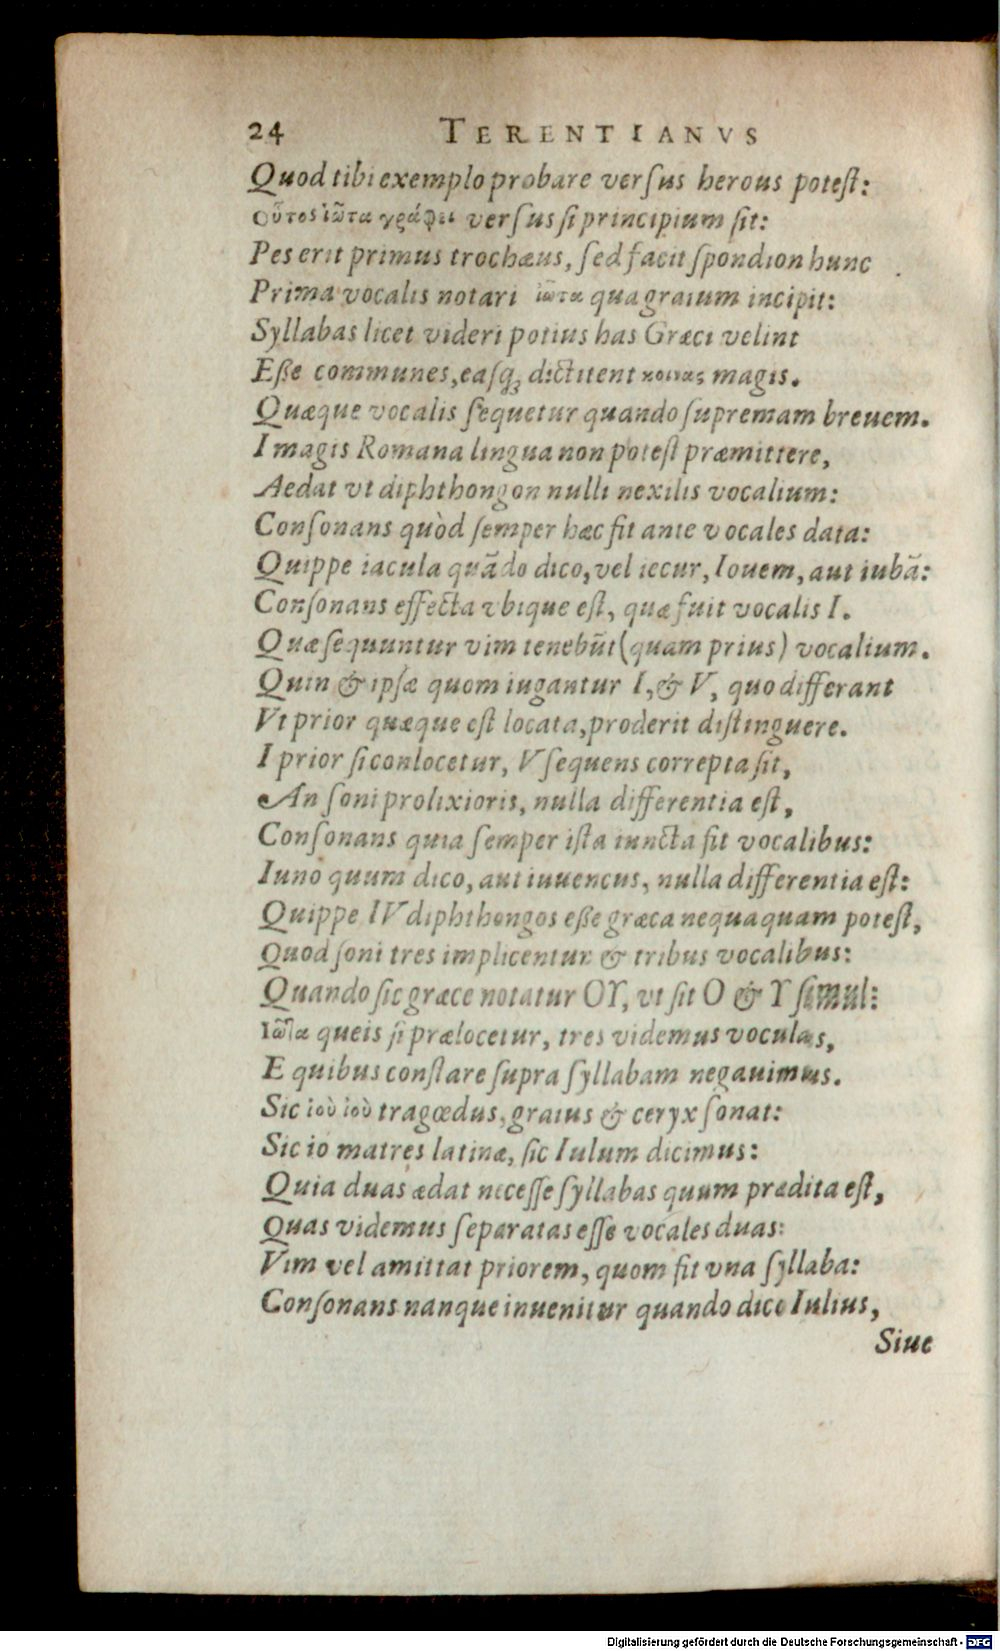 24 TERENTIANVS
Quod tibi exemplo probare verſus herous poteſt:
οὗτος ἰῶτα γράφει verſus ſi principium ſit:
Pes erit primus trochæus, ſed facit ſpondion hunc
Prima vocalis notari ἰῶτα qua graium incipit:
Syllabas licet videri potius has Græci velint
Eße communes, eaſqꝫ dictitent κοινας magis.
Quæque vocalis ſequetur quando ſupremam breuem.
I magis Romana lingua non poteſt præmittere,
Aedat vt diphthongon nulli nexilis vocalium:
Conſonans quòd ſemper hæc fit ante vocales data:
Quippe iacula quãdo dico, vel iecur, Iouem, aut iubã:
Conſonans effecta vbique eſt, quæ fuit vocalis I.
Quæ ſequuntur vim tenebũt (quam prius) vocalium.
Quin & ipſæ quom iugantur I, & V, quo differant
Vt prior quæque eſt locata, proderit diſtinguere.
I prior ſi conlocetur, V ſequens correpta ſit,
An ſoni prolixioris, nulla differentia eſt,
Conſonans quia ſemper iſta iuncta fit vocalibus:
Iuno quum dico, aut iuuencus, nulla differentia eſt:
Quippe IV diphthongos eße græca nequaquam poteſt,
Quod ſoni tres implicentur & tribus vocalibus:
Quando ſic græce notatur OY, vt ſit O & Y ſimul:
Ἰῶτα queis ſi prælocetur, tres videmus voculas,
E quibus conſtare ſupra ſyllabam negauimus.
Sic ἰοὺ ἰοὺ tragœdus, graius & ceryx ſonat:
Sic io matres latinæ, ſic Iulum dicimus:
Quia duas ædat neceſſe ſyllabas quum prædita eſt,
Quas videmus ſeparatas eſſe vocales duas:
Vim vel amittat priorem, quom fit vna ſyllaba:
Conſonans nanque inuenitur quando dico Iulius,
Siue
Digitalisierung gefördert durch die Deutsche Forschungsgemeinschaft - DFG